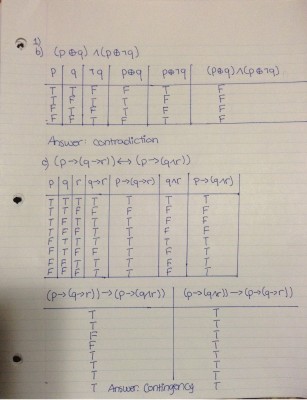 1)
b) (p⊕q) ∧(p⊕¬q)
p q ¬q p⊕q p⊕¬q (p⊕q)∧(p⊕¬q)
T T F F T F
T F T T F F
F T F T F F
F F T F T F
Answer: contradiction
c) (p→(q→r)) ↔ (p→(q∧r))
p q r q→r p→(q→r) q∧r p→(q∧r)
T T T T T T T
T T F F F F F
T F T T T F F
T F F T T F F
F T T T T T T
F T F F T F T
F F T T T F T
F F F T T F T
(p→(q→r)) → (p→(q∧r)) (p→(q∧r)) → (p→(q→r))
T T
T T
F T
F T
T T
T T
T T
T Answer: Contingency T